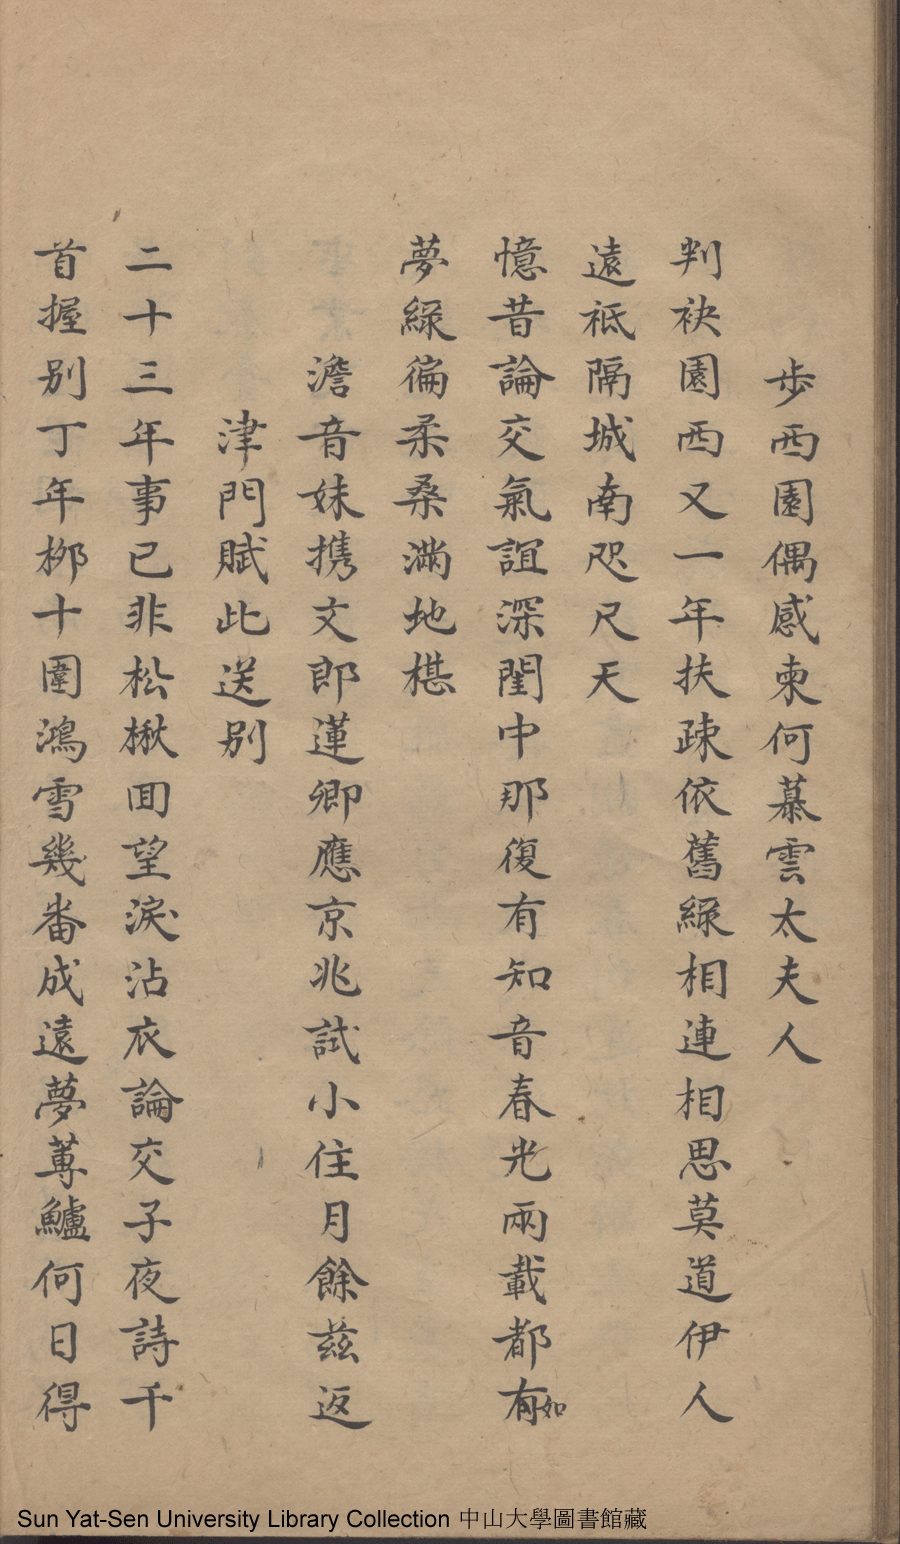 步西園偶感柬何慕雲太夫人
判袂園西又一年扶疎依舊綠相連相思莫道伊人
遠袛隔城南咫尺天
憶昔論交氣誼深閨中那復有知音春光兩載都有如
夢綠徧柔桑滿地椹
澹音妹携文郎蓮卿應京兆試小住月餘茲返
津門賦此送別
二十三年事已非松楸囬望淚沾衣論交子夜詩千
首握別丁年柳十圍鴻雪幾番成遠夢蓴鱸何日得
Sun Yat-Sen University Library Collection 中山大學圖書館藏